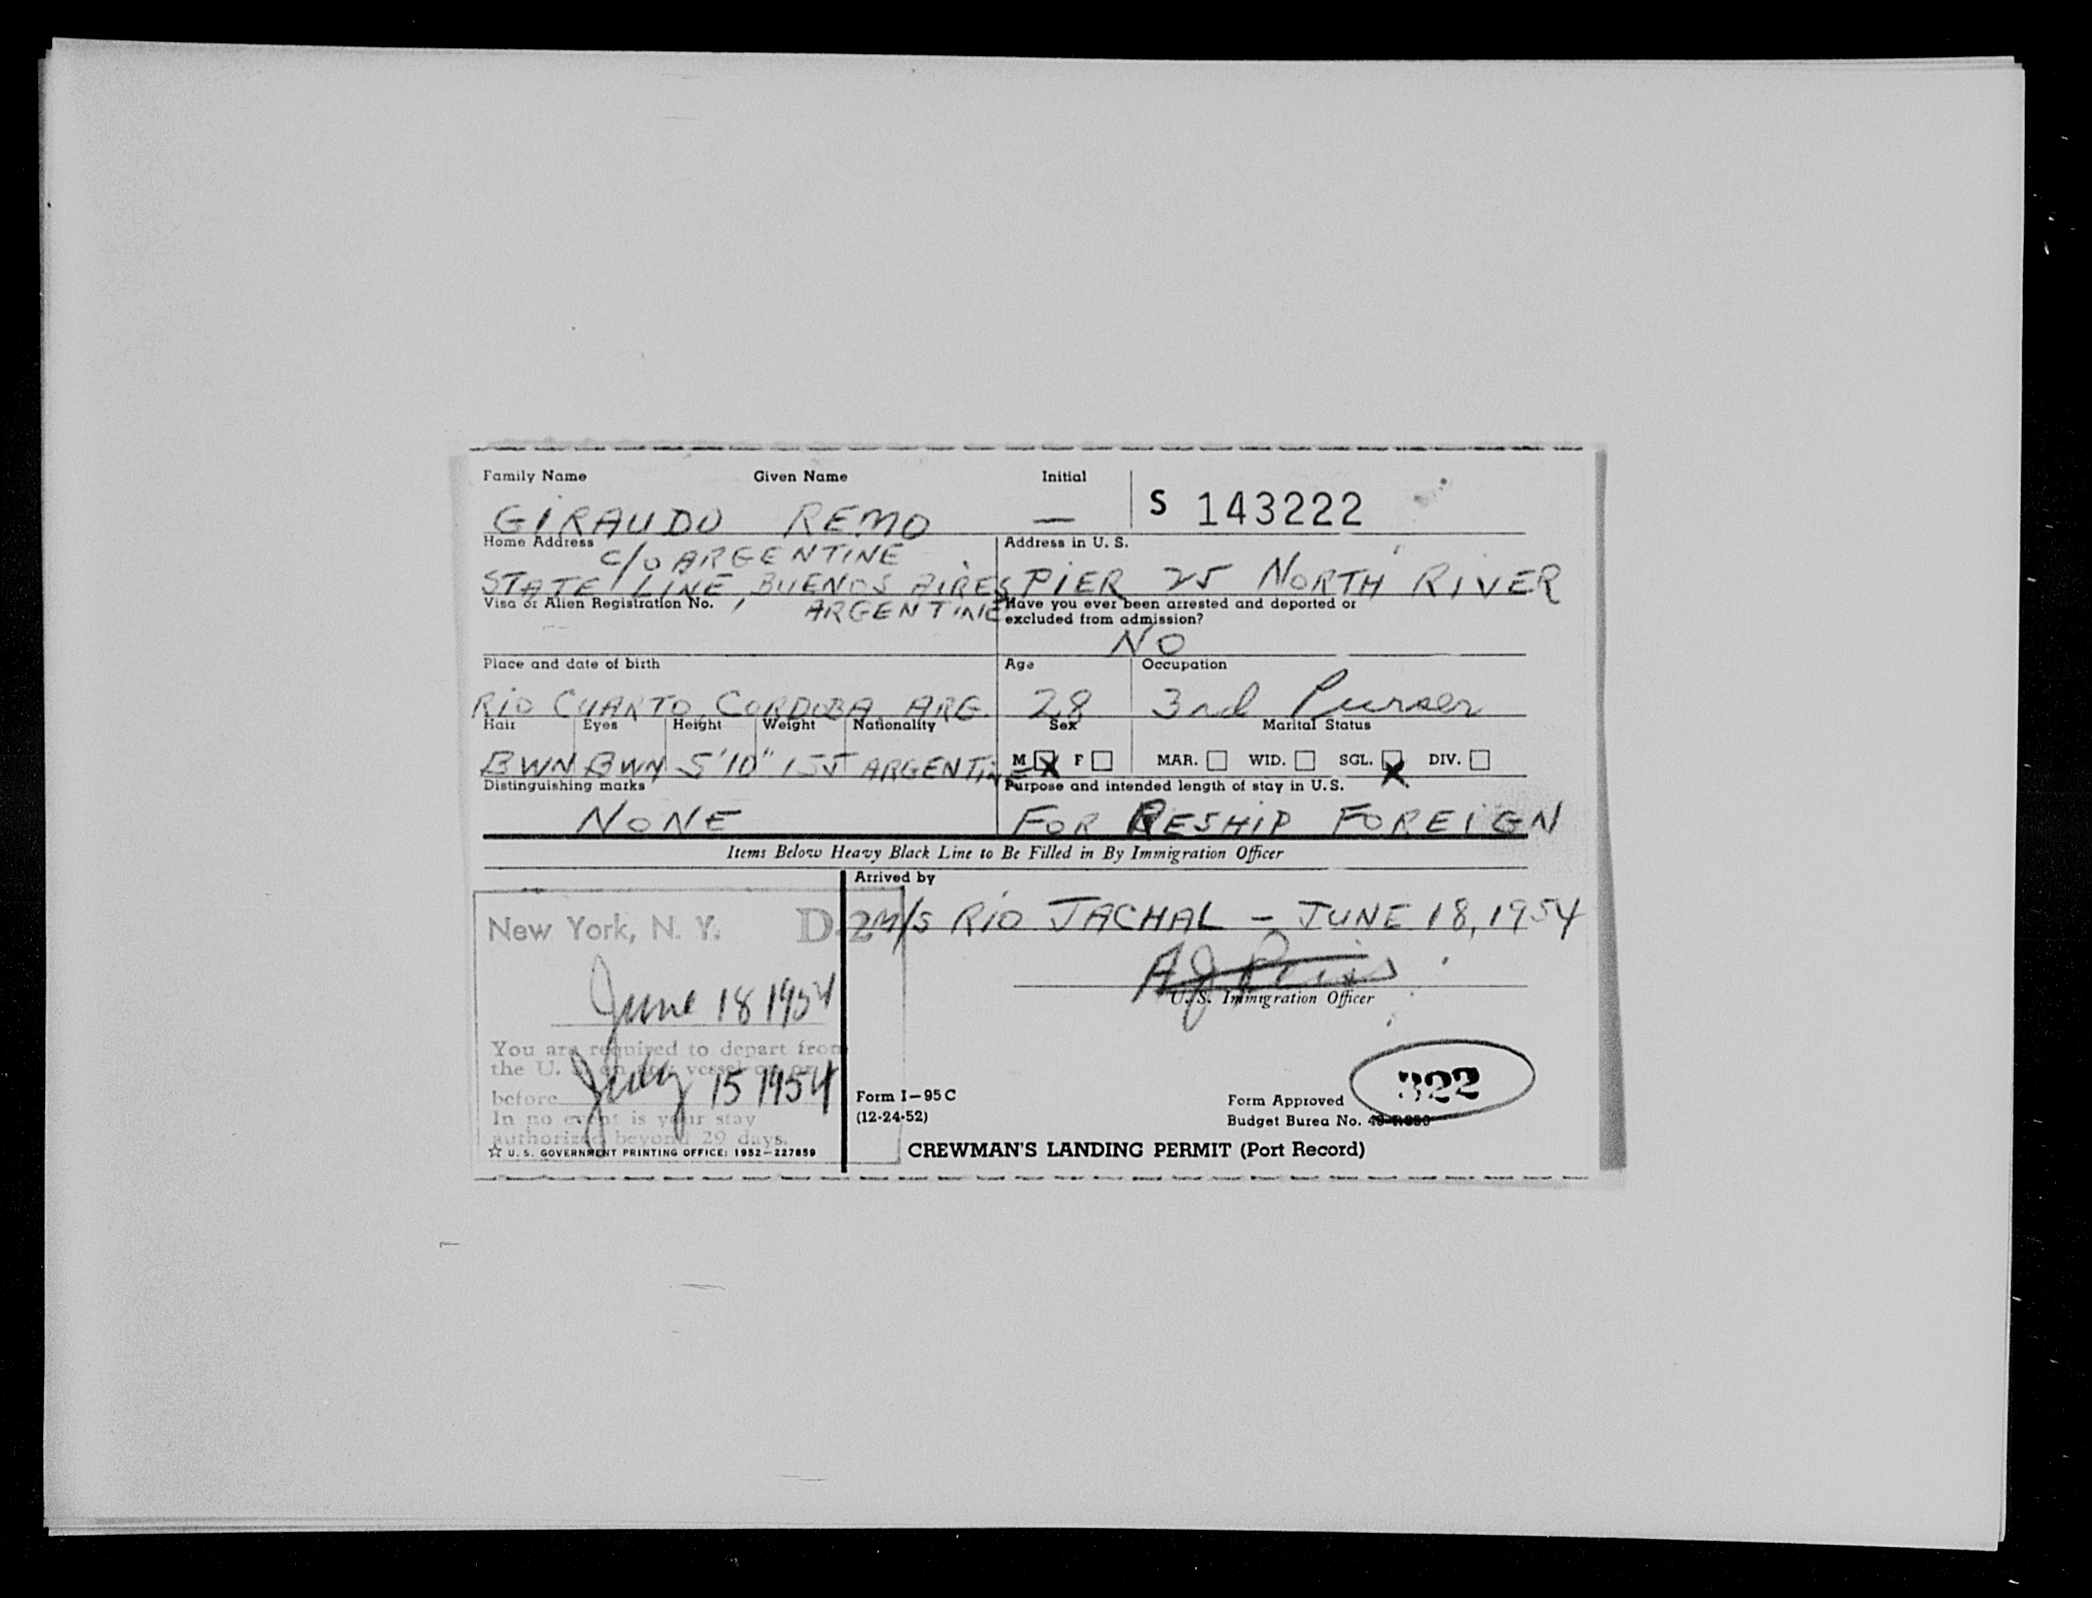 Family Name Given Name Initial
GIRAUDO REMO — S 143222
Home Address Address in U. S.
C/O ARGENTINE
STATE LINE, BUENOS AIRES PIER 25 NORTH RIVER
ARGENTINE
Visa or Alien Registration No. Have you ever been arrested and deported or
excluded from admission?
NO
Place and date of birth Age Occupation
RIO CUARTO, CORDOBA ARG. 28 3rd Purser
Hair Eyes Height Weight Nationality Sex Marital Status
BWN BWN 5'10" 155 ARGENTINE M X F MAR. WID. SGL. X DIV.
Distinguishing marks Purpose and intended length of stay in U. S.
NONE FOR RESHIP FOREIGN
Items Below Heavy Black Line to Be Filled in By Immigration Officer
Arrived by
M/S RIO JACHAL - JUNE 18, 1954
New York, N. Y. D-2
U. S. Immigration Officer
June 18 1954
You are required to depart from
the U. S. on any vessel on or
before July 15 1954
In no event is your stay
authorized beyond 29 days.
☆ U. S. GOVERNMENT PRINTING OFFICE: 1952—227859
Form I-95 C
(12-24-52)
322
Form Approved
Budget Bureau No.
CREWMAN'S LANDING PERMIT (Port Record)